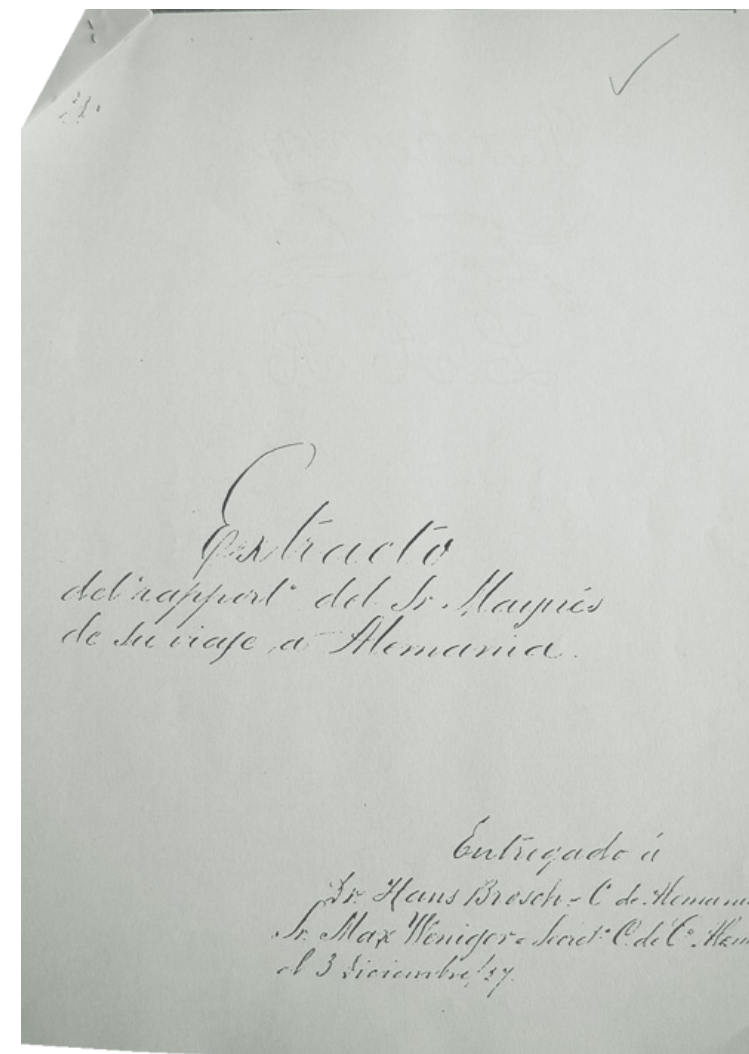 Extracto
del "rapport" del Sr. Maynés
de su viaje a Alemania.
Entregado á
Sr. Hans Brosch - C. de Alemani
Sr. Max Weniger - Secret° C. de C° Alem
el 3 Diciembre/37.